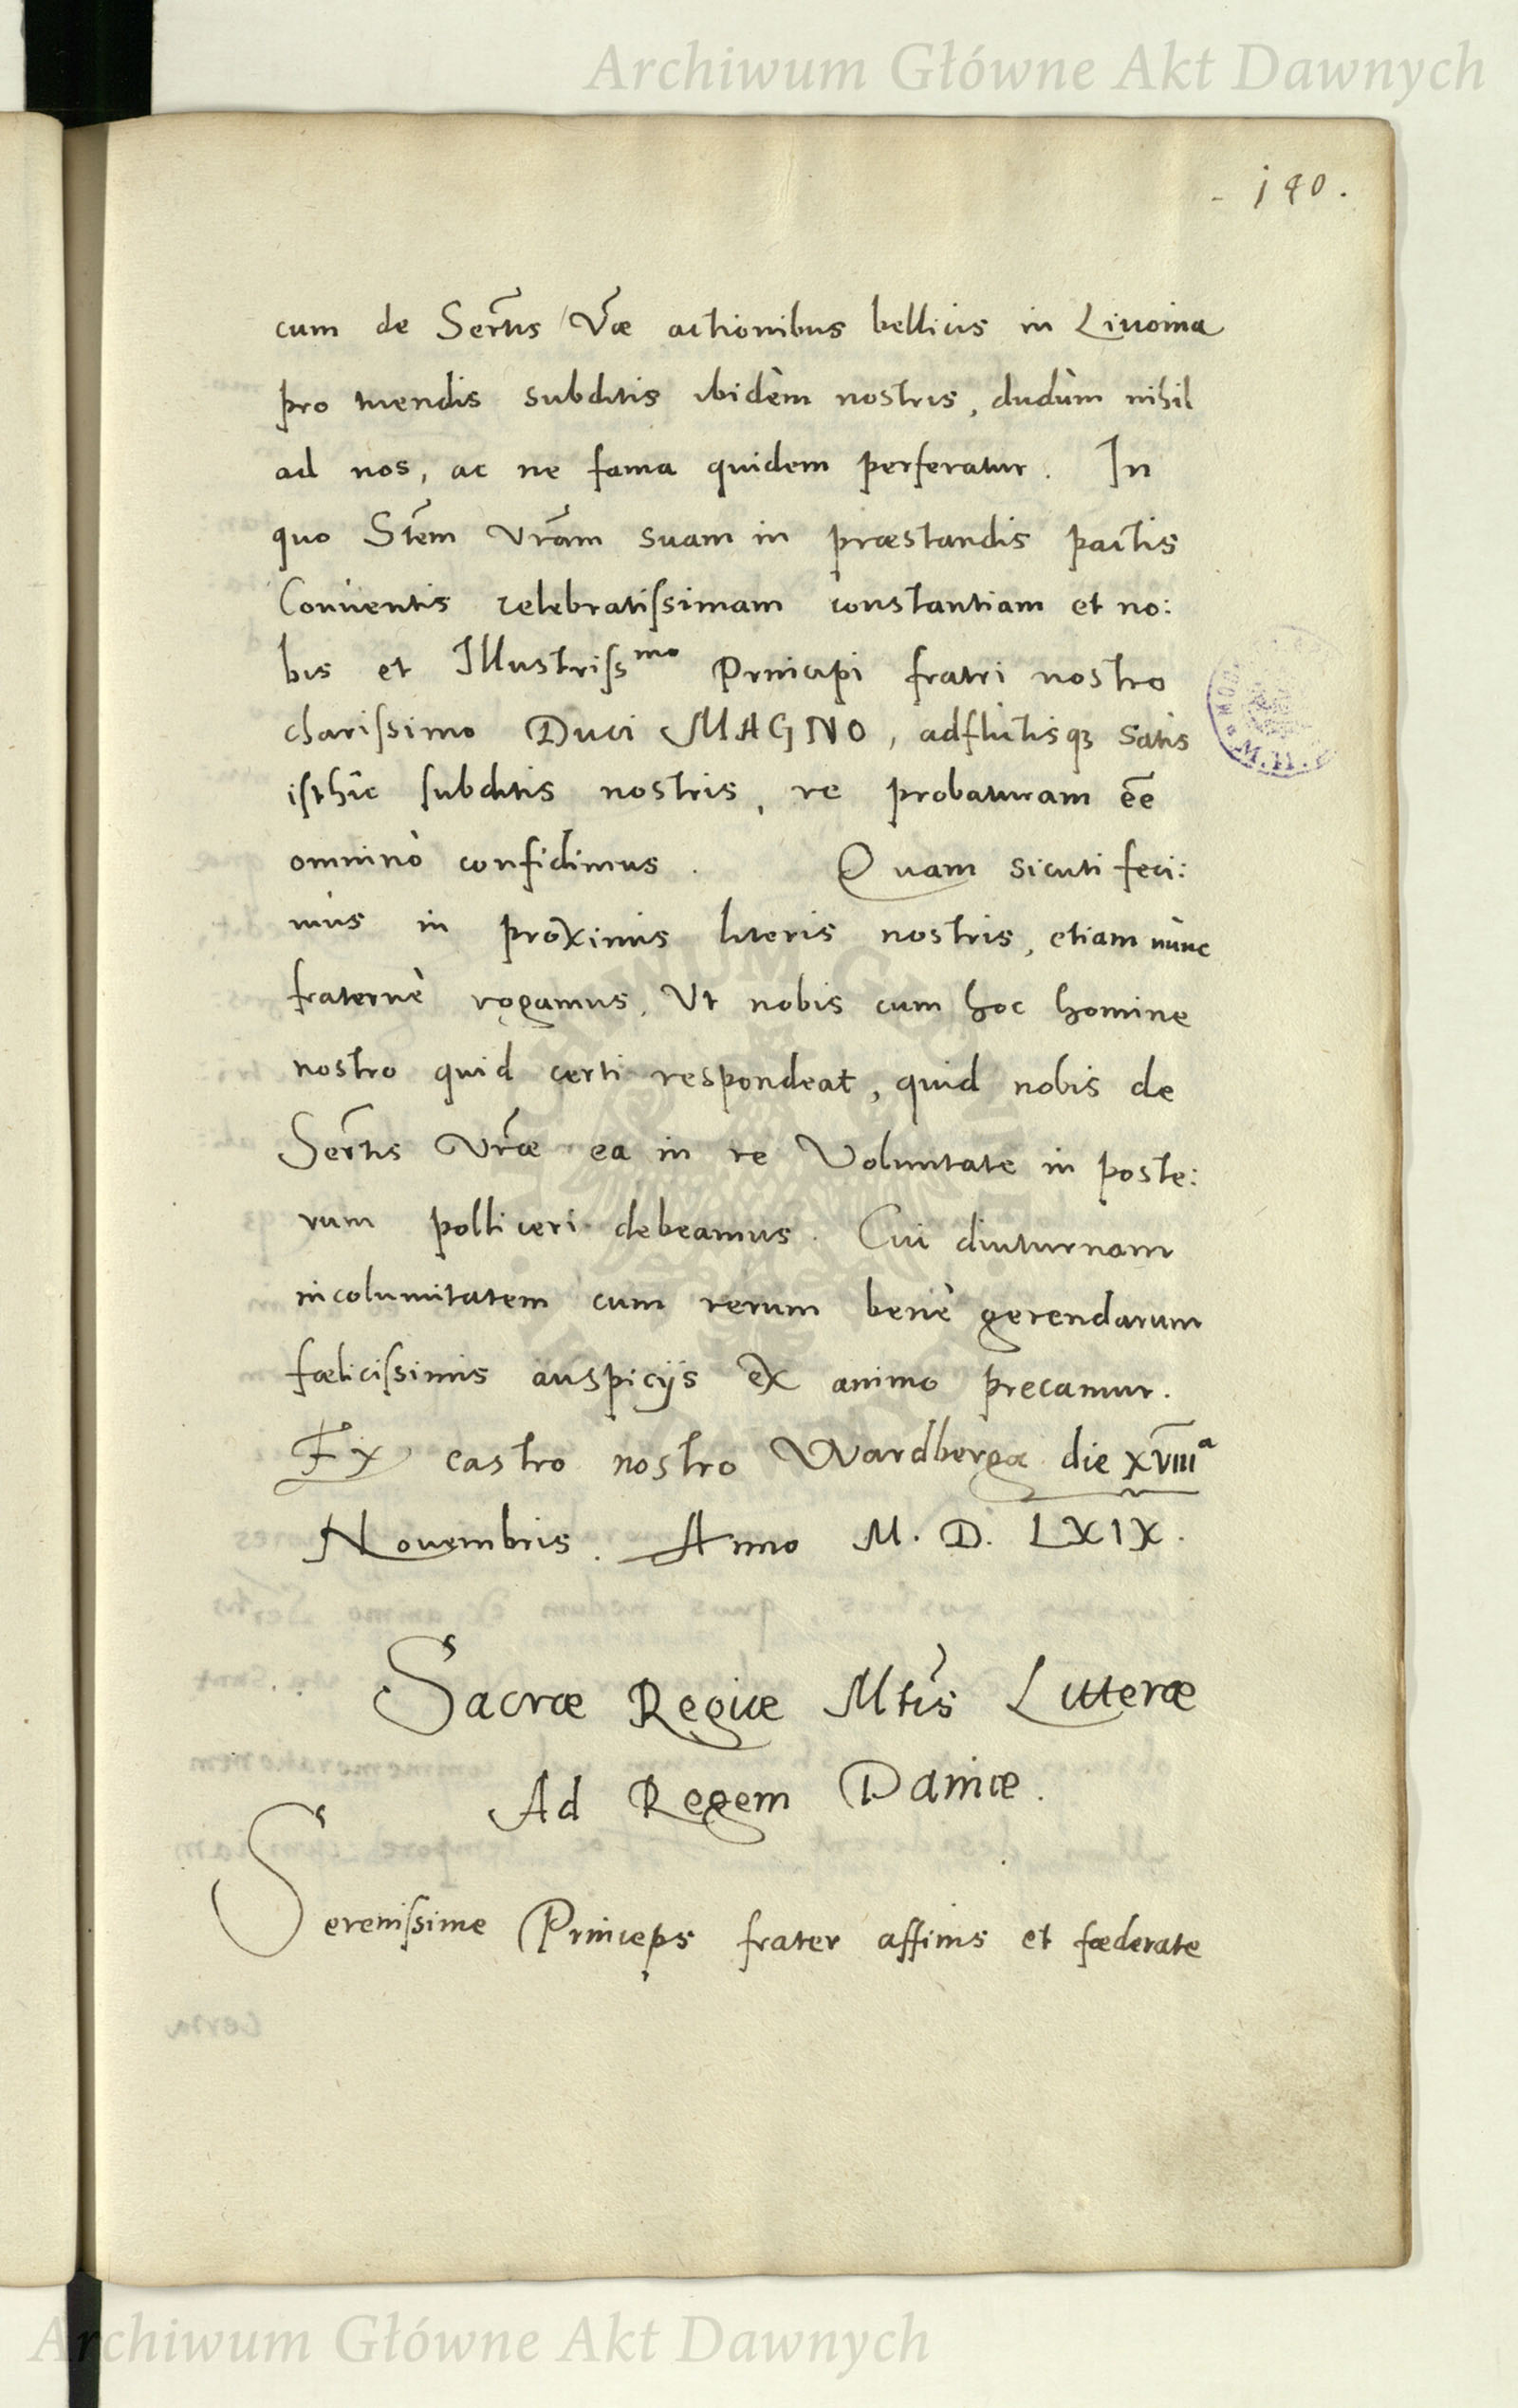 Archiwum Główne Akt Dawnych
190.
cum de Sert̃is Vr̃æ actionibus bellicis in Livonia
pro tuendis subditis ibidèm nostris, dudùm nihil
ad nos, ac ne fama quidem perferatur. In
quo St̃em Vr̃am suam in præstandis pactis
Conuentis celebratiſsimam constantiam et no:
bis et Illustriſs^mo Principi fratri nostro
chariſsimo Duci MAGNO, adflictisq₃ satis
iſthîc ſubditis nostris, re probaturam ẽe
omninò confidimus. Quam sicuti feci:
mus in proximis literis nostris, etiam nùnc
fraternè rogamus, Vt nobis cum hoc homine
nostro quid certi respondeat, quid nobis de
Sert̃is Vr̃æ ea in re Voluntate in poste:
rum polliceri debeamus. Cui diuturnam
incolumitatem cum rerum benè gerendarum
fœliciſsimis auspicijs ex animo precamur.
Ex castro nostro Wardbergæ die XVIIIᵃ
Nouembris. Anno M. D. LXIX.
Sacræ Regiæ Mt̃is Litteræ
Ad Regem Daniæ.
Sereniſsime Princeps frater affinis et fœderate
Archiwum Główne Akt Dawnych